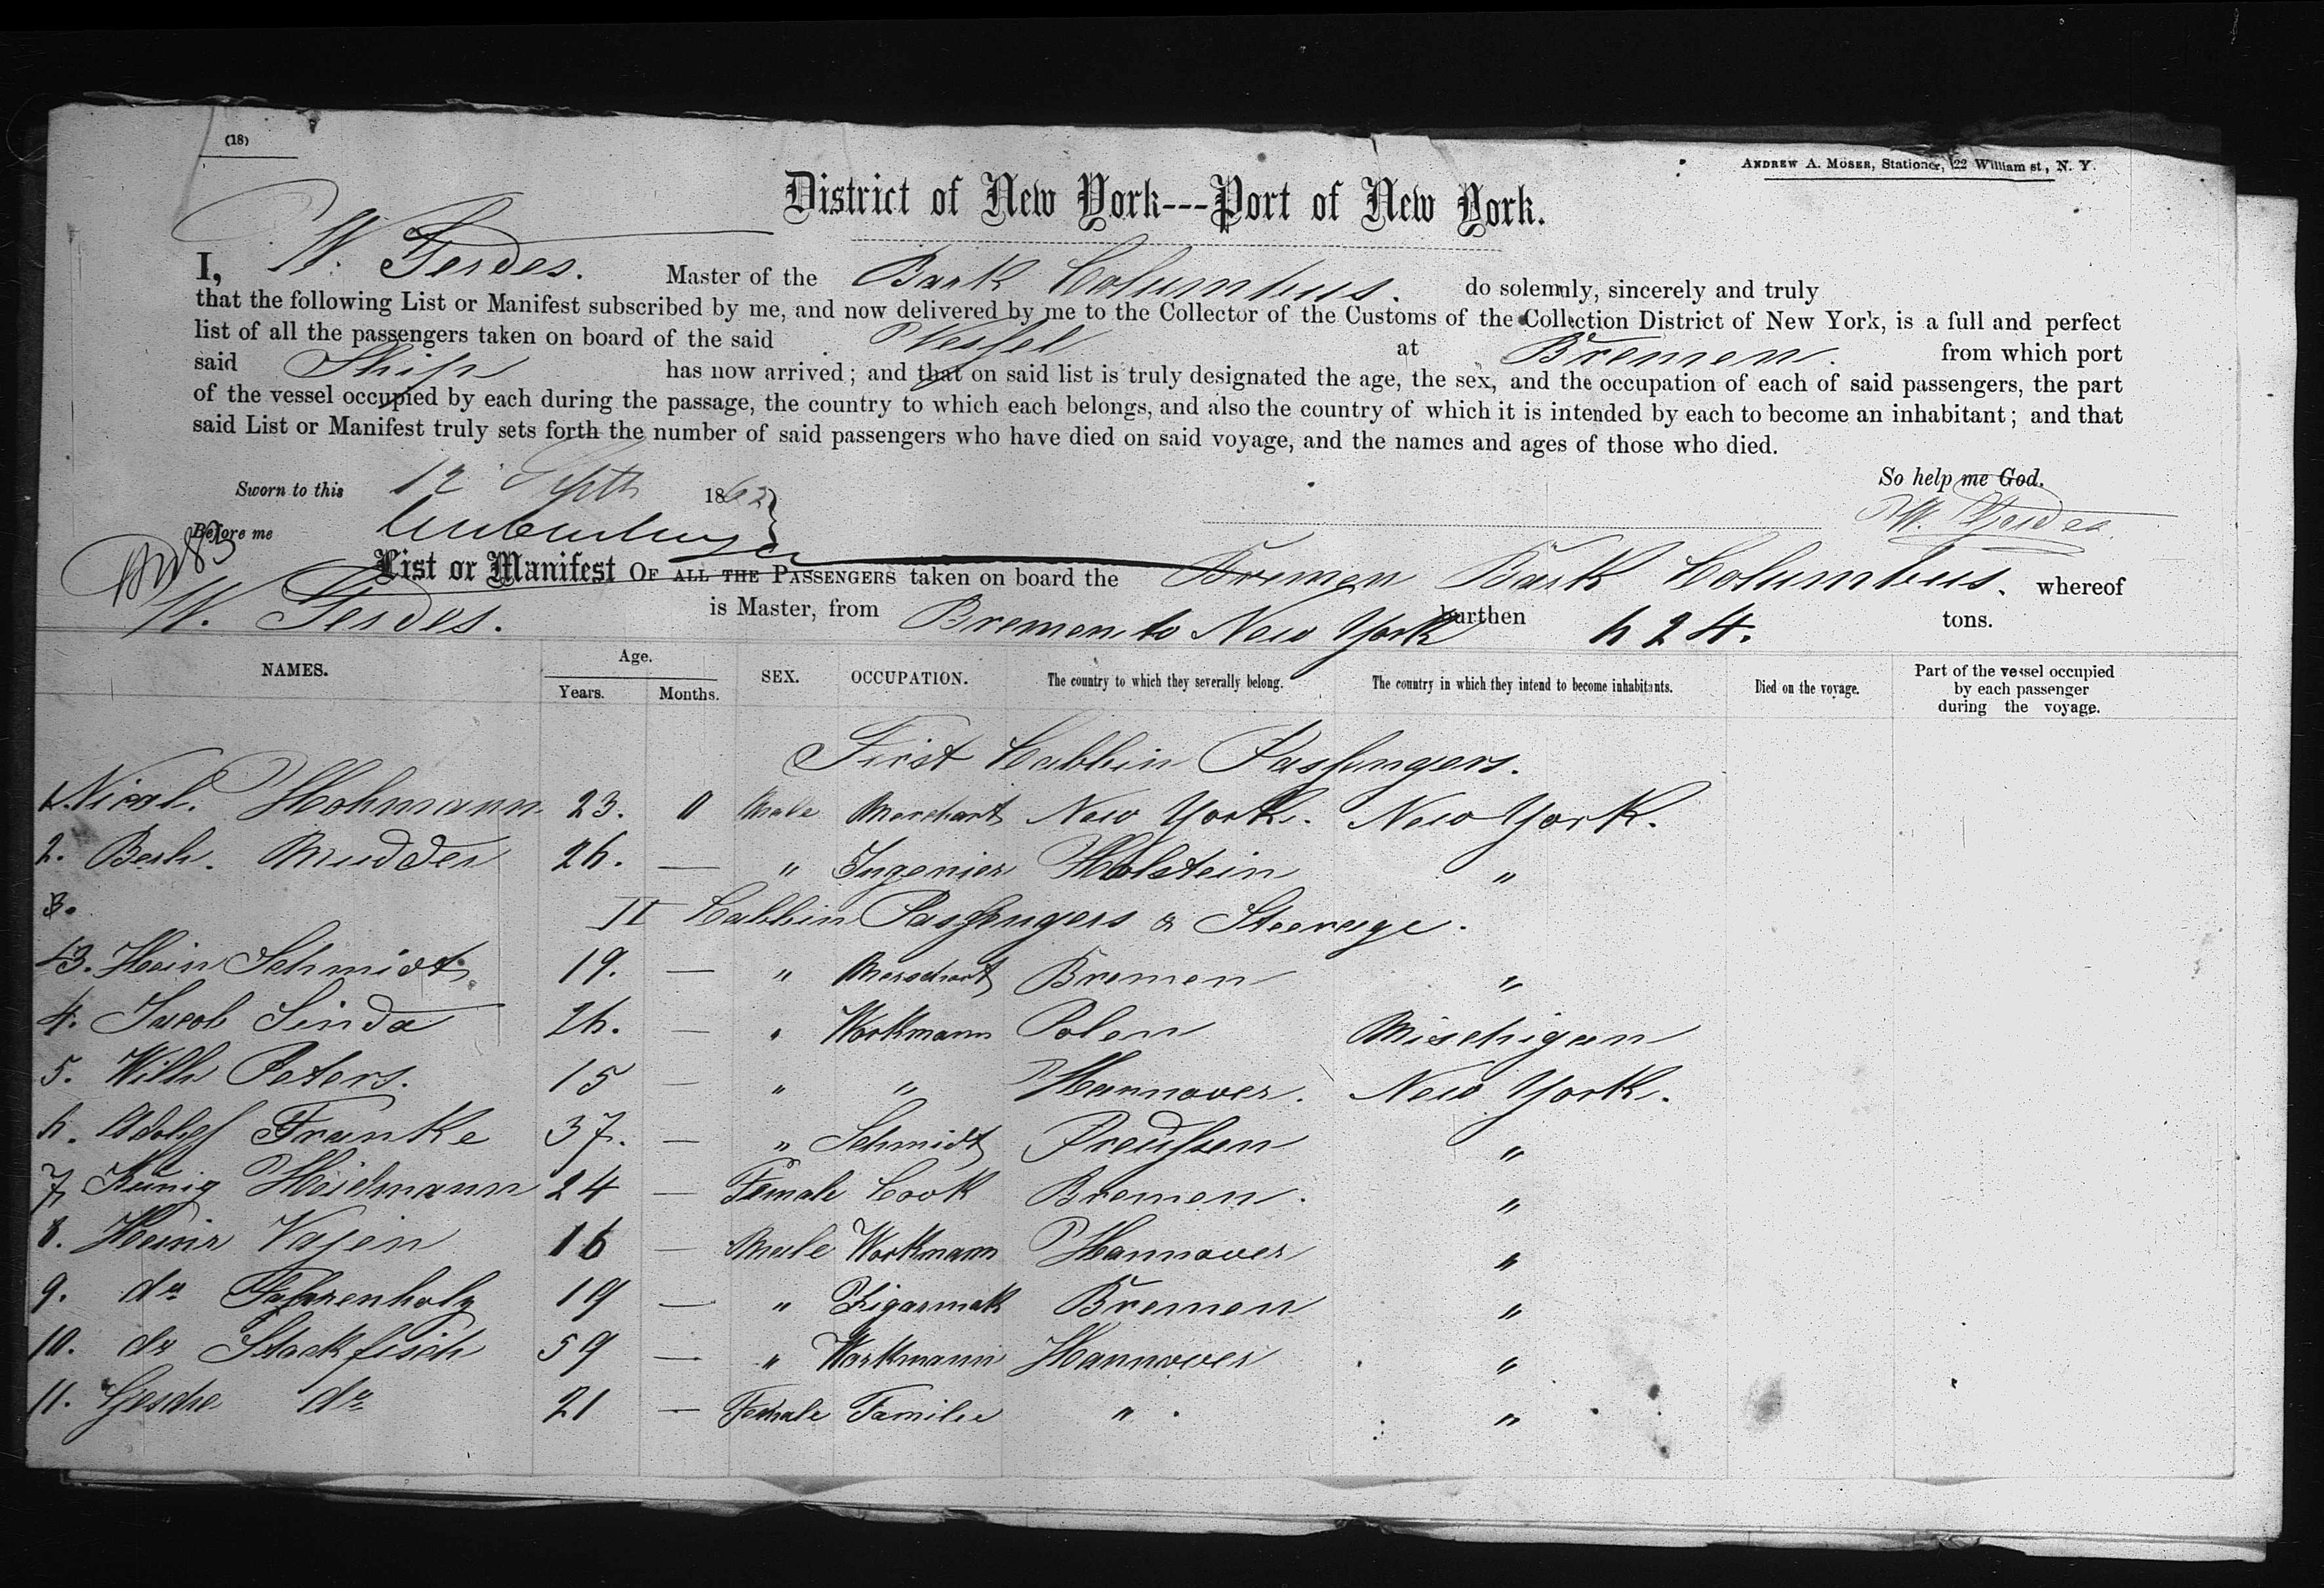 (18)
ANDREW A. MOSER, Stationer, 22 William st, N. Y.
District of New York---Port of New York.
I, W. Gerdes. Master of the Bark Columbus. do solemnly, sincerely and truly
that the following List or Manifest subscribed by me, and now delivered by me to the Collector of the Customs of the Collection District of New York, is a full and perfect
list of all the passengers taken on board of the said Vessel at Bremen. from which port
said Ship has now arrived; and that on said list is truly designated the age, the sex, and the occupation of each of said passengers, the part
of the vessel occupied by each during the passage, the country to which each belongs, and also the country of which it is intended by each to become an inhabitant; and that
said List or Manifest truly sets forth the number of said passengers who have died on said voyage, and the names and ages of those who died.
So help me God.
Sworn to this 12 Septh 1862
W. Gerdes.
Before me
List or Manifest OF ALL THE PASSENGERS taken on board the Bremen Bark Columbus. whereof
W. Gerdes. is Master, from Bremen to New York burthen 624. tons.
NAMES. Age. Years. Months. SEX. OCCUPATION. The country to which they severally belong. The country in which they intend to become inhabitants. Died on the voyage. Part of the vessel occupied by each passenger during the voyage.
First Cabbin Passengers.
1. Nicol. Hohmann. 23. 11 Male Merchant New York. New York.
2. Berh. Mudder 26. — " Ingenier Holstein "
3. II Cabbin Passengers & Steerage.
3. Hein Schmidt 19. — " Merchant Bremen "
4. Jacob Sinda 26. — " Workmann Polen Mischigan
5. Wilh Peters. 15 — " " Hannover. New York.
6. Adolf Franke 37. — " Schmidt Preußen "
7. Heidmann 24 — Female Cook Bremen. "
8. Heinr Vajen 16 — Male Workmann Hannover "
9. do Fahrenholz 19 — " Zigarmak Bremen "
10. do Stockfisch 59 — " Workmann Hannover "
11. Gesche do 21 — Female Familie " "